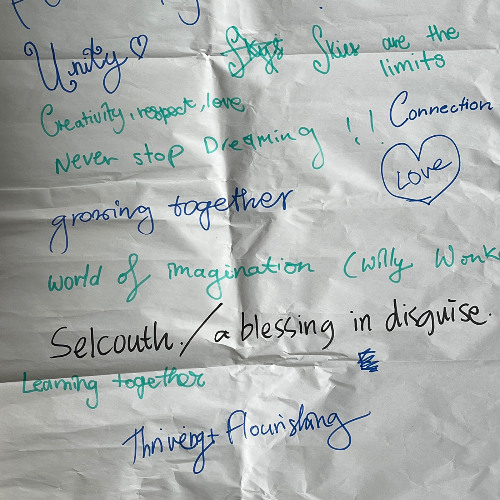 Unity
Skies are the
limits
Creativity, respect, love
Connection
Never stop Dreaming !!
Love
growing together
world of imagination (willy Wonk
Selcouth. / a blessing in disguise.
Learning together
Thriving + flourishing